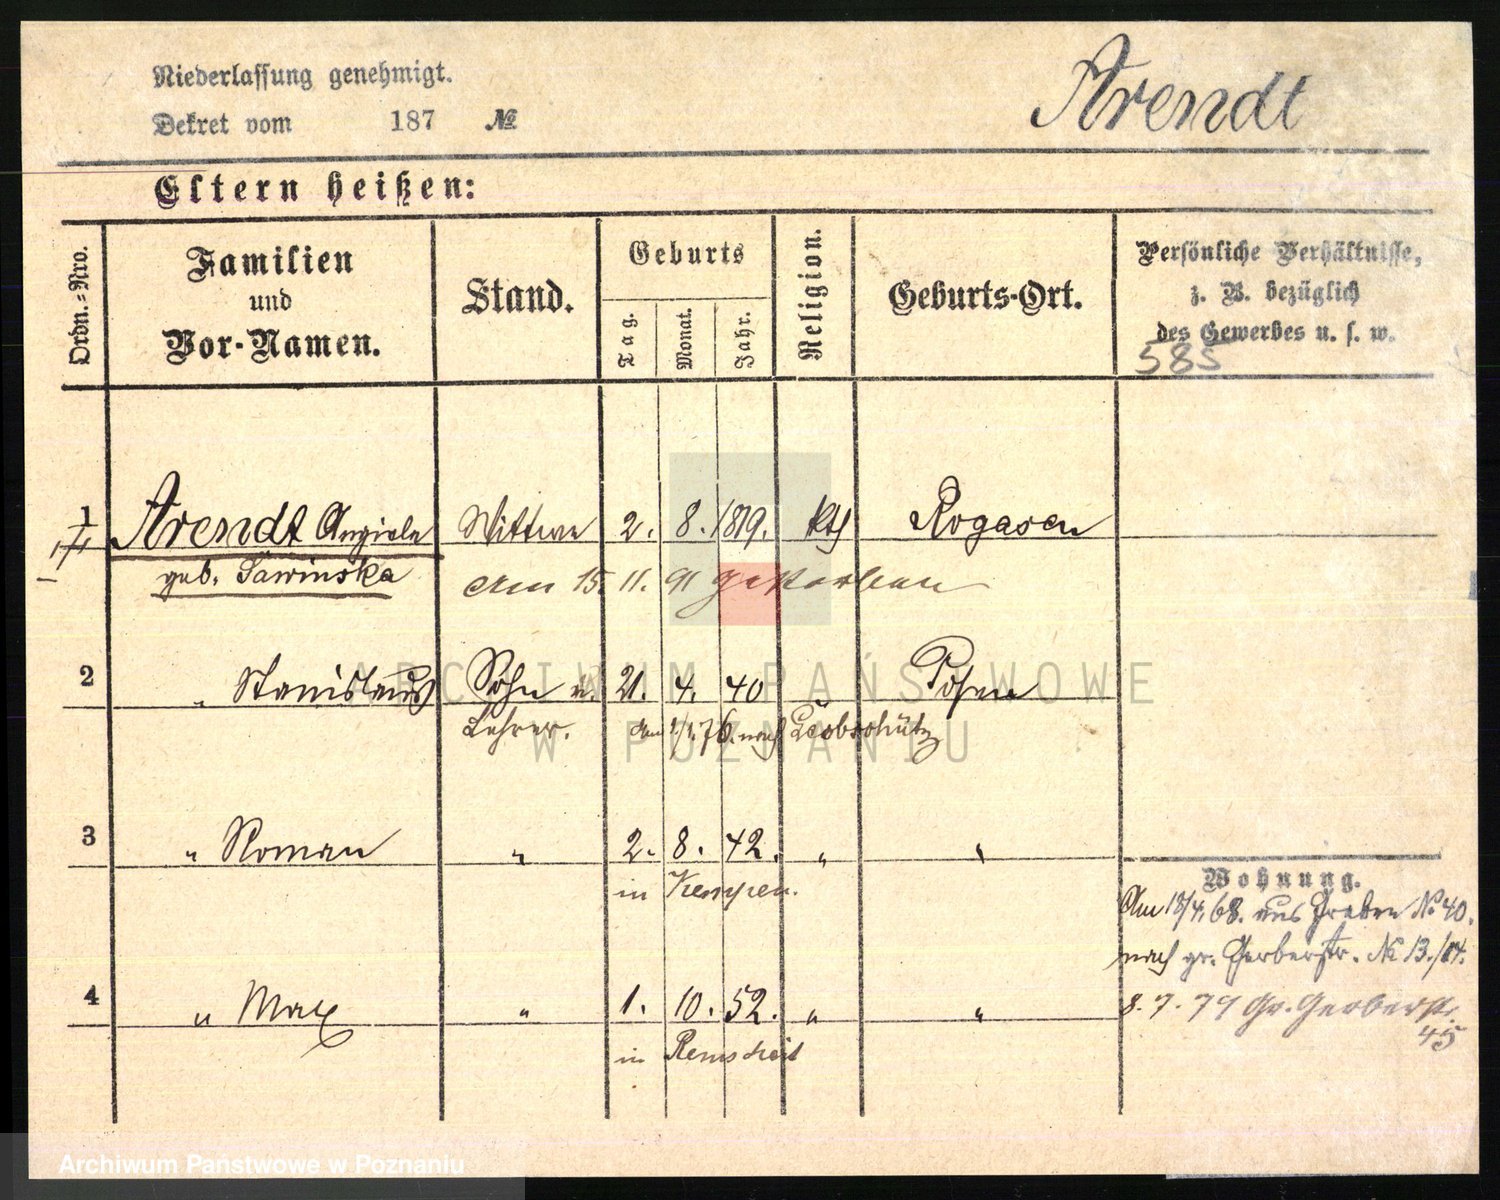 Niederlassung genehmigt.
Arendt
Dekret vom 187 №
Eltern heißen:
Ordn.-Nro.
Familien und Vor-Namen.
Stand.
Geburts
Tag.
Monat.
Jahr.
Religion.
Geburts-Ort.
Persönliche Verhältnisse,
z. B. bezüglich
des Gewerbes u. s. w.
585
1 Arendt Angiela Wittwe 2. 8. 1819. kth Rogasen
geb. Sawinska am 15. 11. 91 gestorben
2 " Stanislaus Sohn u. 21. 4. 40 " Posen
Lehrer. am 1/1. 76. nach Leobschütz
3 " Roman " 2. 8. 42. " "
in Kempen.
Wohnung.
Am 18/4. 68. aus Graben № 40.
nach gr. Gerberstr. № 13./14.
4 " Max " 1. 10. 52. " "
8. 7. 79 Gr. Gerberstr.
45
in Remscheid
ARCHIWUM PAŃSTWOWE
W POZNANIU
Archiwum Panstwowe w Poznaniu